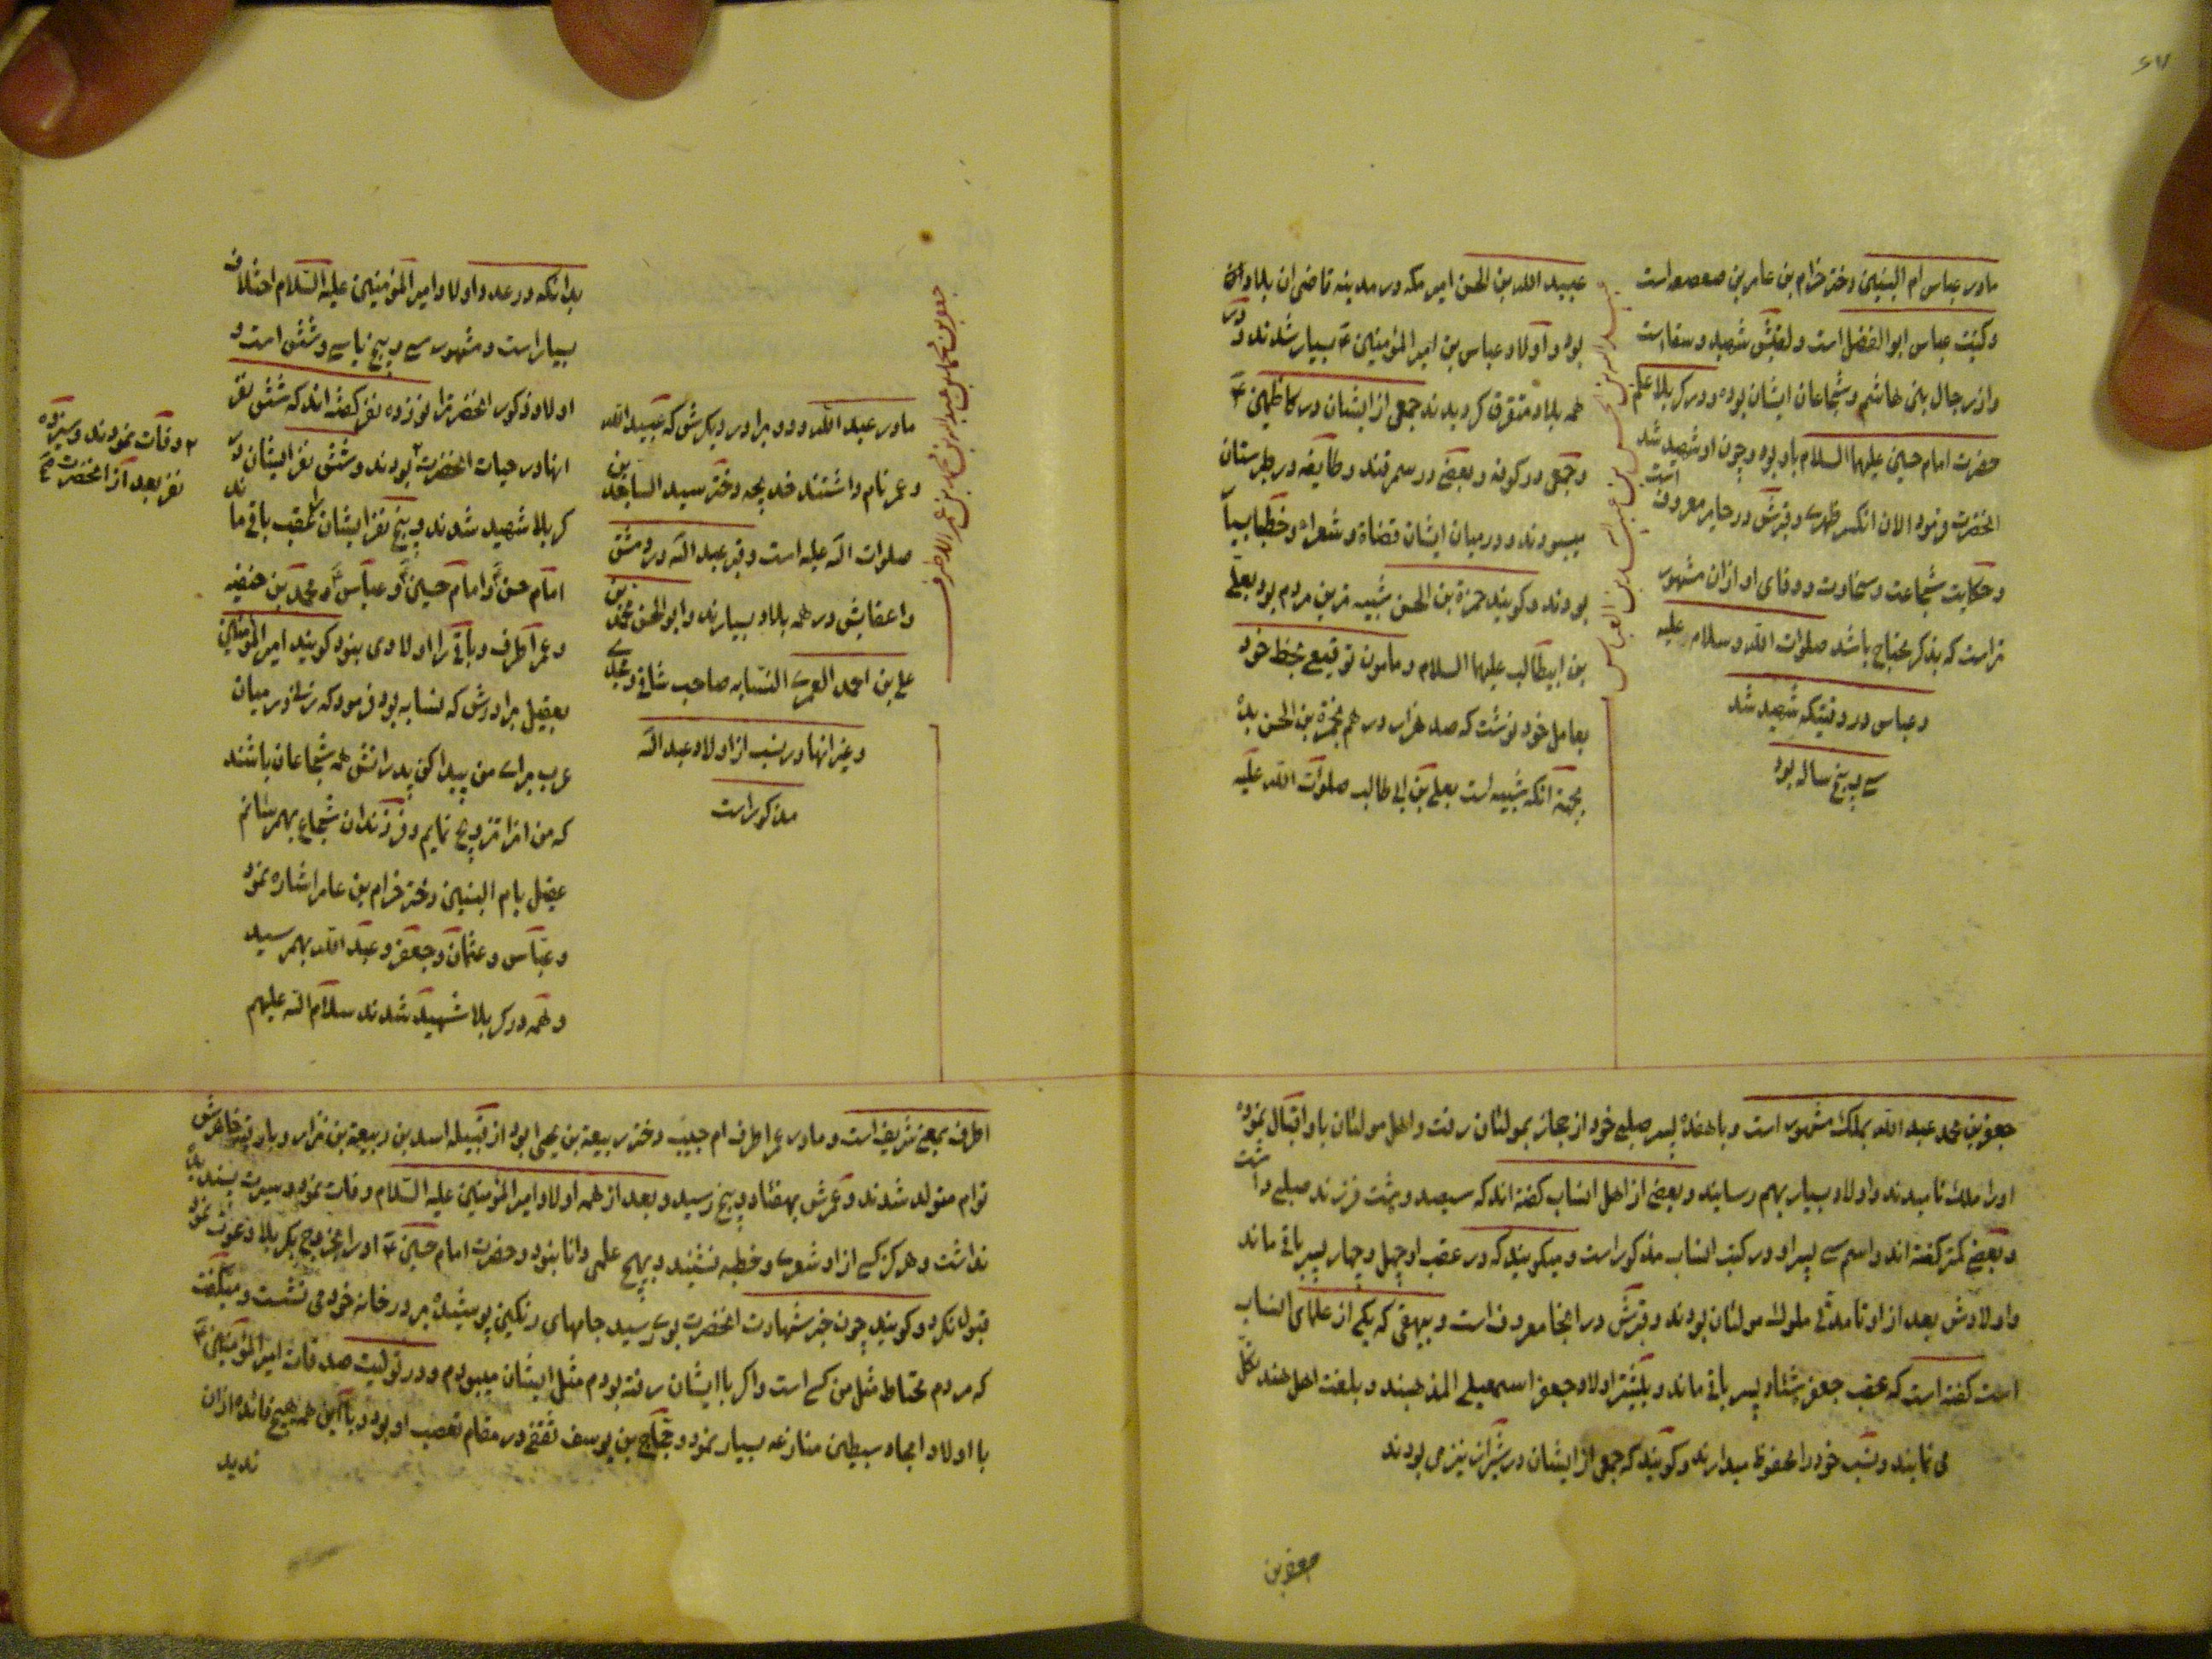 مادر عباس ام البنین دختر خرام بن عامر بن صعصعه است
و کنیت عباس ابو الفضل است و لقبش شهید و سقا است
و از رجال بنی هاشم و شجاعان ایشان بوده و در کربلا علم
حضرت امام حسین علیهما السلام با او بود و چون او شهید شد
انحضرت فرمود الان انکسر ظهری و قبرش در حایر معروف است
و حکایت شجاعت و سخاوت و وفای او ازان مشهور
تر است که بذکر محتاج باشد صلوات الله و سلام علیه
و عباس در وقتیکه شهید شد
سی و پنج ساله بود
عبید الله بن الحسن بن عبید الله بن العباس
عبید الله بن الحسن امیر مکه و مدینه قاضی ان بلاد ان
بود و اولاد عباس بن امیر المؤمنین ع بسیار شدند و در
همه بلاد متفرق کردیدند جمعی از ایشان در کاظمین ع
و جمعی در کوفه و بعضی در سمرقند و طایفه در طبرستان
میبودند و در میان ایشان قضاة و شعراء و خطبا بسیار
بودند و کویند حمزة بن الحسن شبیه ترین مردم بود بعلی
بن ابیطالب علیهما السلام و مامون توقیعی بخط خود
بعامل خود نوشت که صد هزار درهم بحمزة بن الحسن بده
بجهة انکه شبیه است بعلی بن ابی طالب صلوات الله علیه
جعفر بن محمد عبد الله بملک مشهور است و با هفده پسر صلبی خود از حجاز بمولتان رفت و اهل مولتان با و اقبال نموده
او را ملک نامیدند و اولاد بسیار بهم رسانید و بعضی از اهل انساب کفته اند که سیصد و هشت فرزند صلبی داشت
و بعضی کمتر کفته اند و اسم سی پسر او در کتب انساب مذکور است و میکویند که در عقب او چهل و چهار پسر باقی ماند
و اولادش بعد از او تا مدتی ملوک مولتان بودند و قبرش در انجا معروف است و بیهقی که یکی از علمای انساب
است کفته است که عقب جعفر هشتاد پسر باقی ماند و بیشتر اولاد جعفر اسمعیلی المذهبند و بلغت اهل هند تکلم
می نمایند و نسب خود را محفوظ میدارند و کویند که جمعی از ایشان در شیراز نیز می بودند
جعفر بن
جعفر بن محمد بن عبد الله بن محمد بن عمر الاطرف
مادر عبد الله و دو برادر دیکرش که عبید الله
و عمر نام داشتند خدیجه دختر سید الساجدین
صلوات الله علیه است و قبر عبد الله در دمشق
و اعقابش در همه بلاد بسیارند و ابو الحسن محمد بن
علی بن احمد العمری النسابه صاحب شافی و مجدی
و غیر انها در نسب از اولاد عبد الله
مذکور است
بدانکه در عدد اولاد امیر المؤمنین علیه السلام اختلاف
بسیار است و مشهور سی و پنج یا سی و شش است و
اولاد ذکور انحضرترا نوزده نفر کفته اند که شش نفر
انها در حیات انحضرت ۲ بودند و شش نفر ایشان در
۲ وفات نمودند و سیزده
نفر بعد از انحضرت ص
کربلا شهید شدند و پنج نفر ایشان را عقب باقی ماند
امام حسن و امام حسین و عباس و محمد بن حنفیه
و عمر اطرف و باقی را اولادی نبود کویند امیر المؤمنین
بعقیل برادرش که نسابه بود فرمود که زنی در میان
عرب برای من پیدا کن پدرانش همه شجاعان باشند
که من انرا تزویج نمایم و فرزندان شجاع بهمرسانم
عقیل بام البنین دختر خرام بن عامر اشاره نمود
و عباس و عثمان و جعفر و عبد الله بهمرسید
و همه در کربلا شهید شدند سلام الله علیهم
اطرف بمعنی شریف است و مادر عمر اطرف ام حبیب دختر ربیعة بن یحیی بود از قبیله اسد بن ربیعة بن نزار و با رقیه خواهرش
توام متولد شدند و عمرش بهفتاد و پنج رسید و بعد از همه اولاد امیر المؤمنین علیه السلام وفات نمود و سیرت پسندیده
نداشت و هرکز کسی از او شعری و خطبه نشنید و بهیچ علمی دانا نبود و حضرت امام حسین ع او را بخروج بکربلا دعوت نمود
قبول نکرد و کویند چون خبر شهادت انحضرت بوی رسید جامهای رنکین پوشیده بر در خانه خود می نشست و میکفت
که مردم محتاط مثل من کسی است و اکر با ایشان رفته بودم مثل ایشان میبودم و در تولیت صدقات امیر المؤمنین ع
با اولاد امجاد سبطین منازعه بسیار نمود و حجاج بن یوسف ثقفی در مقام تعصب او بود و با این همه هیچ فائده ازان
ندید